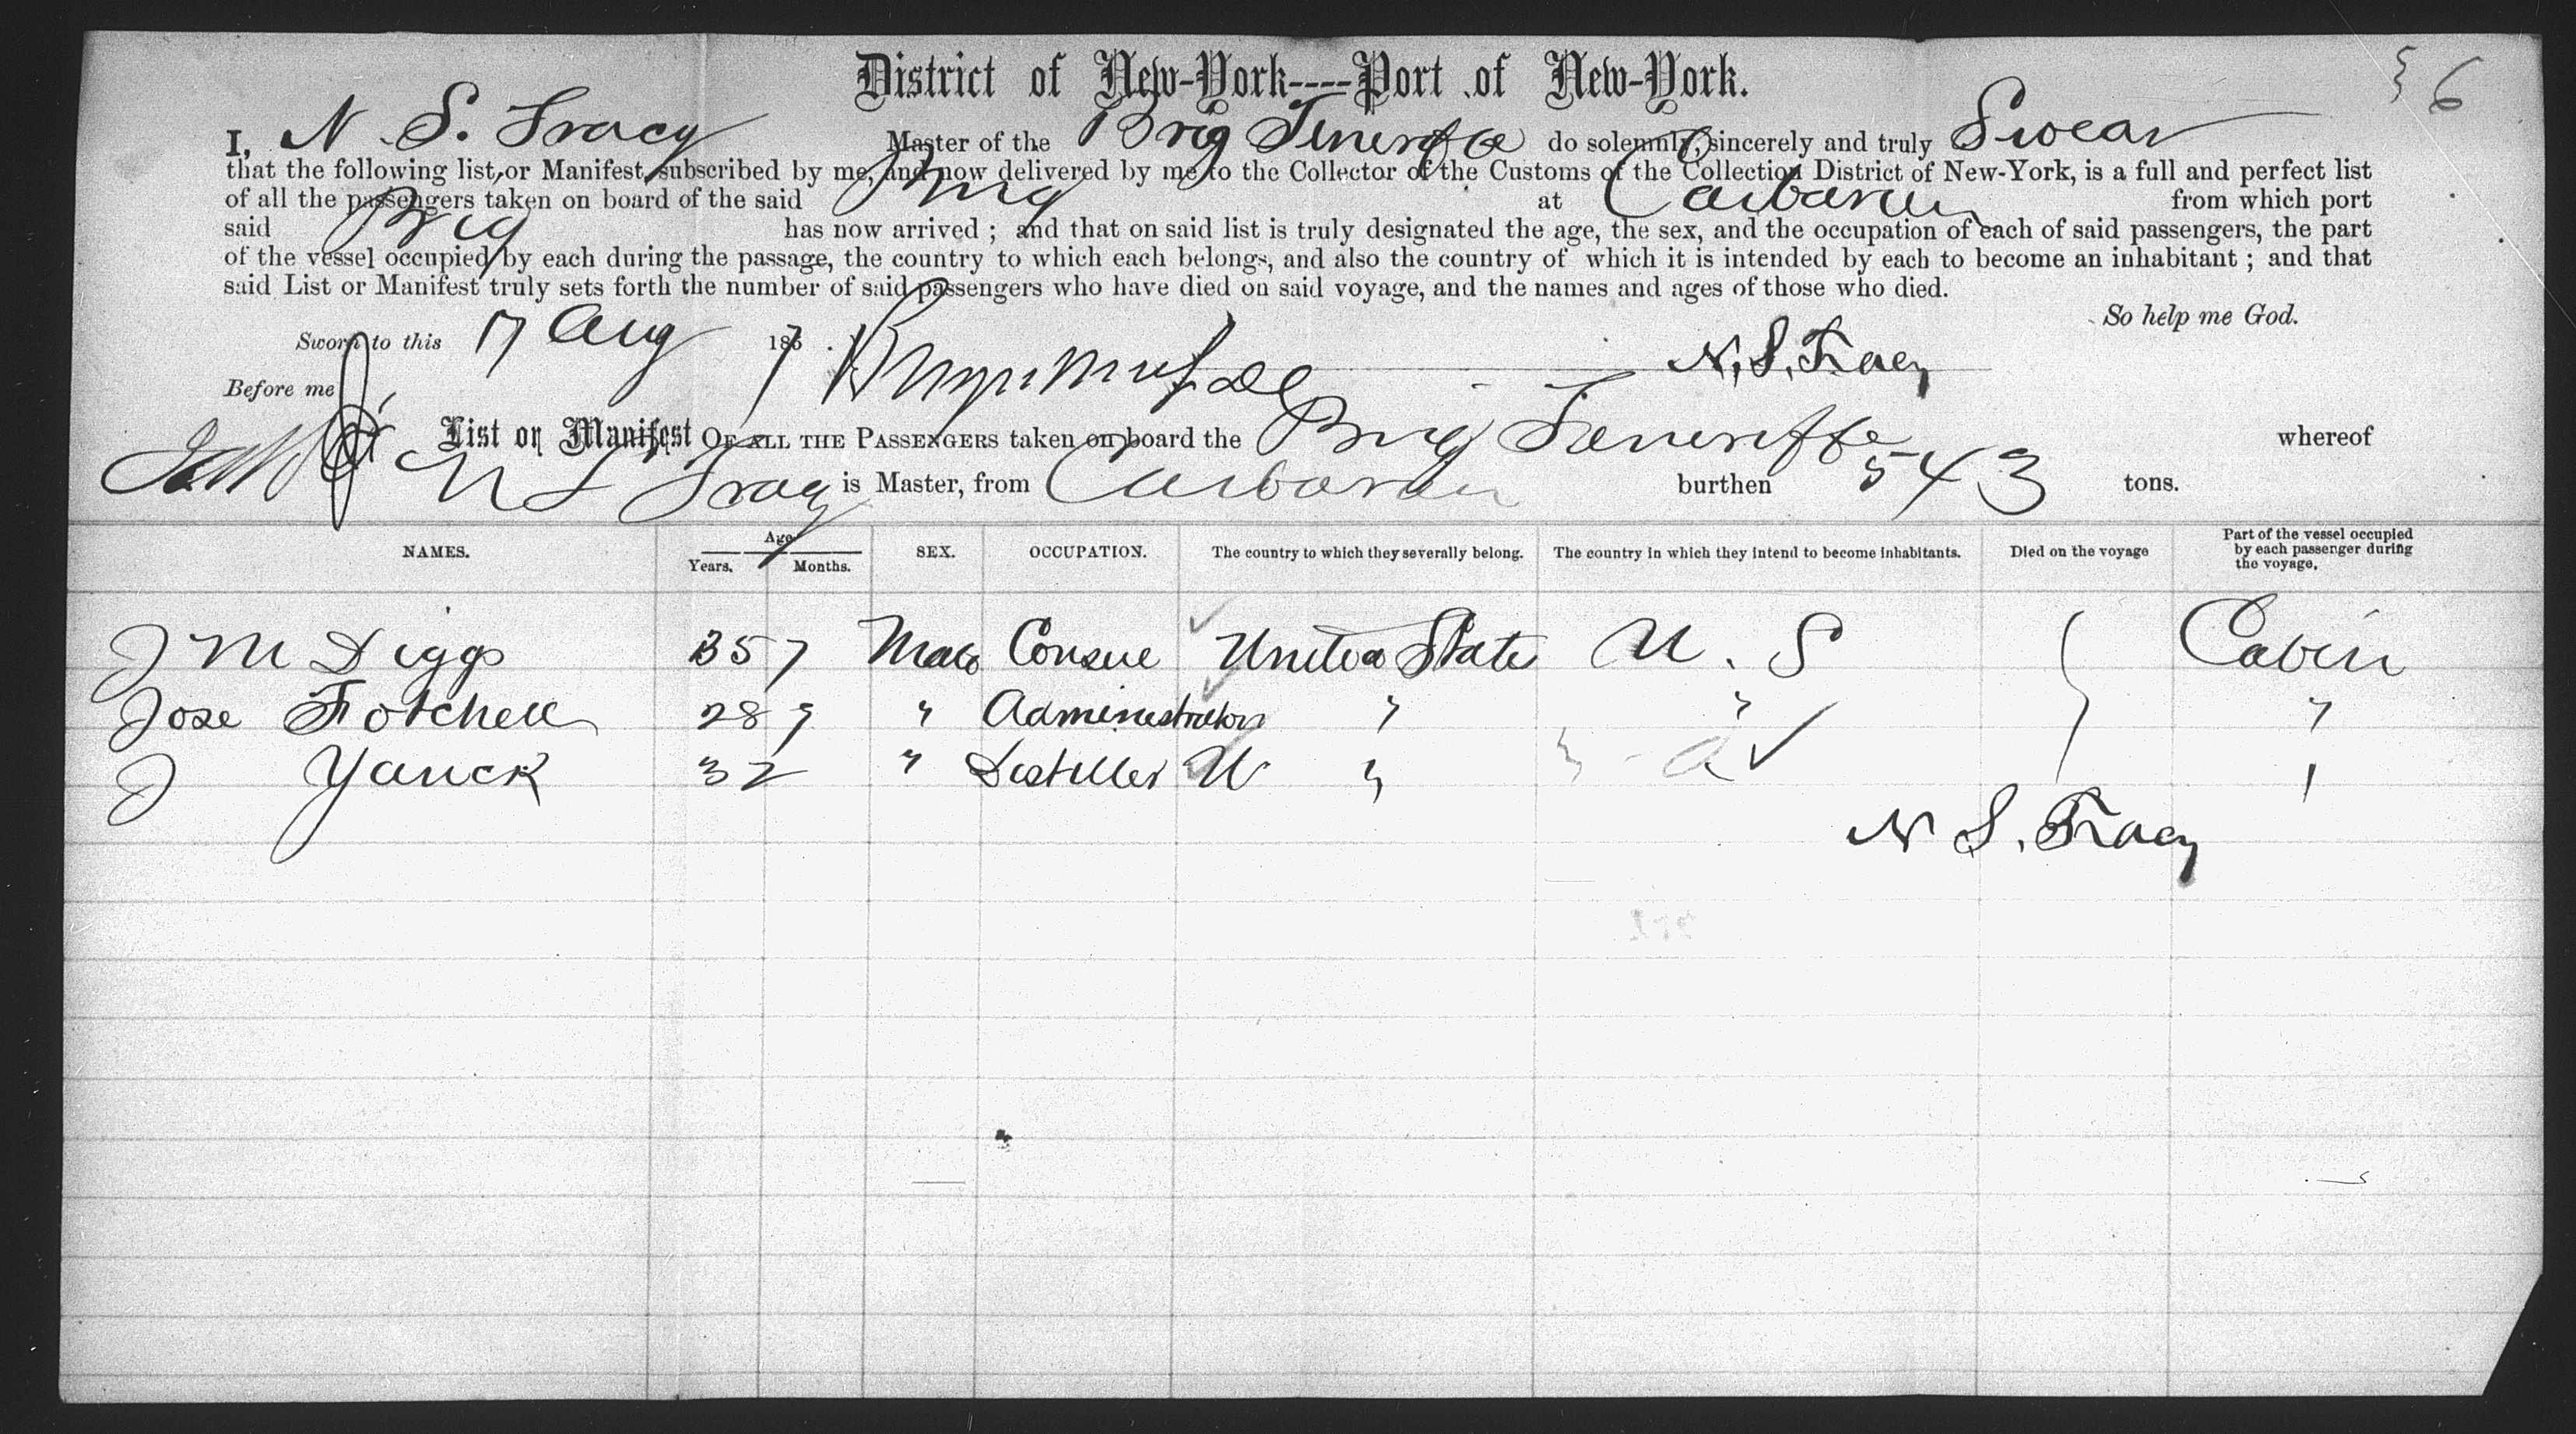 District of New-York----Port of New-York.
6
I, N. S. Tracy Master of the Brig Teneriffe do solemnly, sincerely and truly Swear
that the following list, or Manifest, subscribed by me, and now delivered by me to the Collector of the Customs of the Collection District of New-York, is a full and perfect list
of all the passengers taken on board of the said Brig at Caibarien from which port
said Brig has now arrived ; and that on said list is truly designated the age, the sex, and the occupation of each of said passengers, the part
of the vessel occupied by each during the passage, the country to which each belongs, and also the country of which it is intended by each to become an inhabitant ; and that
said List or Manifest truly sets forth the number of said passengers who have died on said voyage, and the names and ages of those who died.
So help me God.
Sworn to this 17 Aug 187
N. S. Tracy
Before me
List or Manifest OF ALL THE PASSENGERS taken on board the Brig Teneriffe whereof
N S Tracy is Master, from Caibarien burthen 543 tons.
NAMES. Age Years. Months. SEX. OCCUPATION. The country to which they severally belong. The country in which they intend to become inhabitants. Died on the voyage Part of the vessel occupied by each passenger during the voyage.
J M Diggs 35 7 Male Consul United States U. S Cabin
Jose Fotchell 28 " Administrator " " "
J Yanck 32 " Distiller U "
N S. Tracy